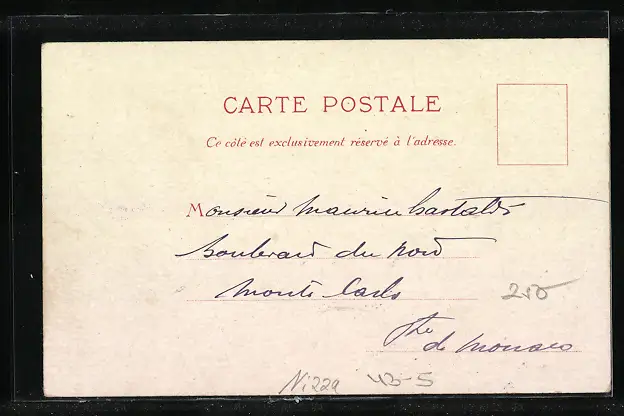 CARTE POSTALE
Ce côté est exclusivement réservé à l'adresse.
Monsieur Maurice Gastaldi
Boulevard du Nord
Monte Carlo
250
Pté de Monaco
Nizza 43-5